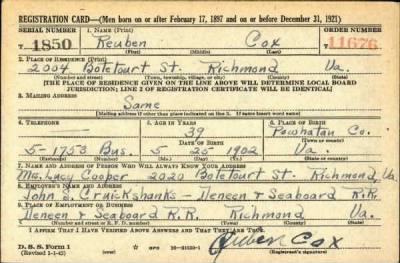 REGISTRATION CARD—(Men born on or after February 17, 1897 and on or before December 31, 1921)
SERIAL NUMBER 1. NAME (Print) ORDER NUMBER
T 1850 Reuben Cox 11676
(First) (Middle) (Last)
2. PLACE OF RESIDENCE (Print)
2004 Botetourt St. Richmond Va.
(Number and street) (Town, township, village, or city) (County) (State)
[THE PLACE OF RESIDENCE GIVEN ON THE LINE ABOVE WILL DETERMINE LOCAL BOARD
JURISDICTION; LINE 2 OF REGISTRATION CERTIFICATE WILL BE IDENTICAL]
3. MAILING ADDRESS
Same
[Mailing address if other than place indicated on line 2. If same insert word same]
4. TELEPHONE 5. AGE IN YEARS 6. PLACE OF BIRTH
39 Powhatan Co.
DATE OF BIRTH (Town or county)
5-1753 Bus. 5 25 1902 Va.
(Exchange) (Number) (Mo.) (Day) (Yr.) (State or country)
7. NAME AND ADDRESS OF PERSON WHO WILL ALWAYS KNOW YOUR ADDRESS
Lucy Cooper 2020 Botetourt St. Richmond Va
8. EMPLOYER'S NAME AND ADDRESS
John Cruickshanks - & Seaboard R.R.
9. PLACE OF EMPLOYMENT OR BUSINESS
& Seaboard R.R. Richmond Va.
(Number and street or R. F. D. number) (Town) (County) (State)
I AFFIRM THAT I HAVE VERIFIED ABOVE ANSWERS AND THAT THEY ARE TRUE.
D. S. S. Form 1 Reuben Cox
(Revised 1-1-42) (over) (Registrant's signature)